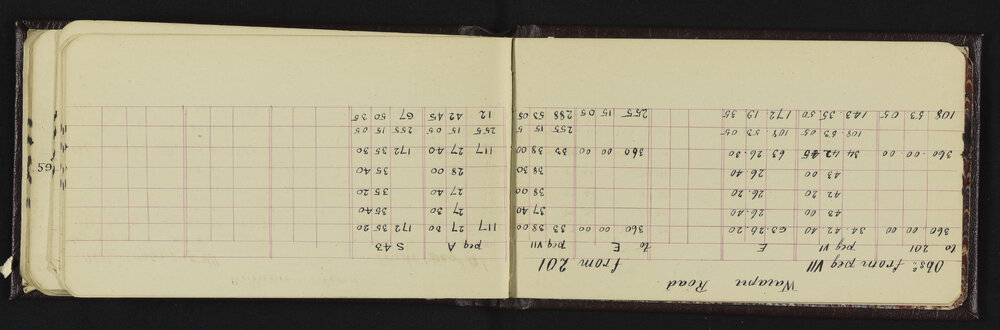 Waiapu Road
Obsns from peg VII from 201
to 201 peg VI E to E peg VII peg A S 43
360 00 00 34 42 40 63.26.20 360 00 00 33 38 00 117 27 30 172 35 20
43 00 26.40 37 40 27 30 35 40
42 20 26.20 38 00 27 40 35 20
43 00 26.40 38 30 28 00 35 40
360.00.00 34 42 45 63 26.30 360 00 00 33 38 00 117 27 40 172 35 30
108.53.05 108.53.05 255 15 5 255 15 05 255 15 05
108 53 05 143.35.50 172.19.35 255 15 05 288 53 05 12 42 45 67 50 35
59